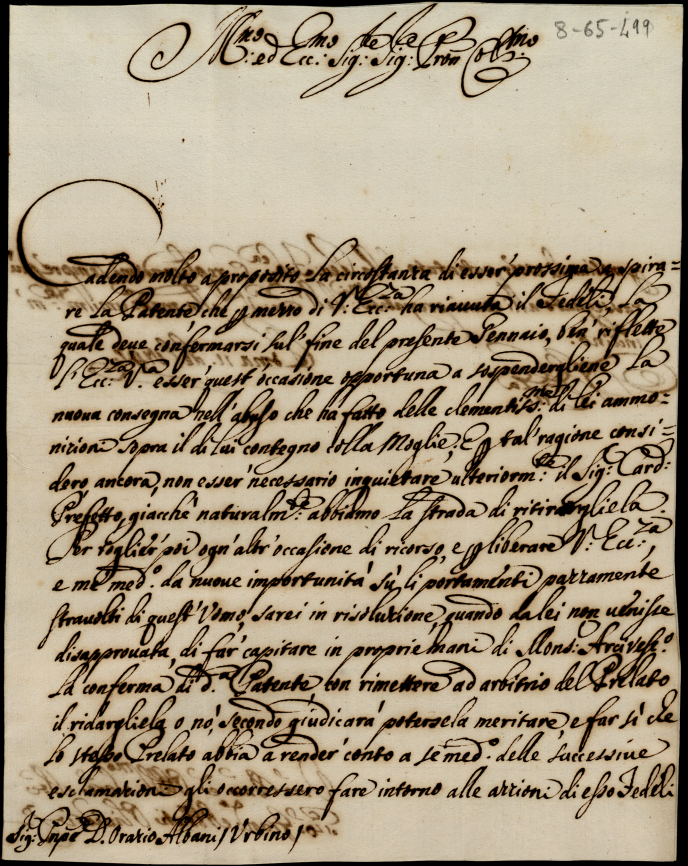 8-65-499
Ill.mo ed Ecc.mo Sig.re Sig.re e Pron Col.mo
Cadendo molto a proposito la circostanza di esser prossima a spira=
re la Patente che p mezzo di V: Ecc:za ha riavuta il Fedeli, la
quale deve confermarsi sul' fine del presente Gennaio, ben' riflette
l'Ecc:za V:a esser' quest' occasione opportuna a sospendergliene la
nuova consegna nell' abuso che ha fatto delle clementiss:me di lei ammo=
nizioni sopra il di lui contegno colla Moglie; E p tal' ragione consi=
dero ancora, non esser' necessario inquietare ulteriorm:te il Sig: Card:
Prefetto, giacchè naturalm:te abbiamo la strada di ritirargliela.
Per toglier' poi ogn' altr' occasione di ricorso, e p liberare V: Ecc:za,
e me med:o da nuove importunità sù li portamenti pazzamente
stravolti di quest' Uomo, sarei in risoluzione, quando da lei non venisse
disapprovata, di far' capitare in proprie mani di Mons: Arcivesc:o
la conferma di d:a Patente con rimettere ad arbitrio del Prelato
il ridargliela, o nò, secondo giudicarà potersela meritare e far sì che
lo stesso Prelato abbia a render' conto a se med:o delle successive
esclamazioni gli occorressero fare intorno alle azzioni di esso Fedeli
Sig: Pnpe D. Orazio Albani / Urbino /